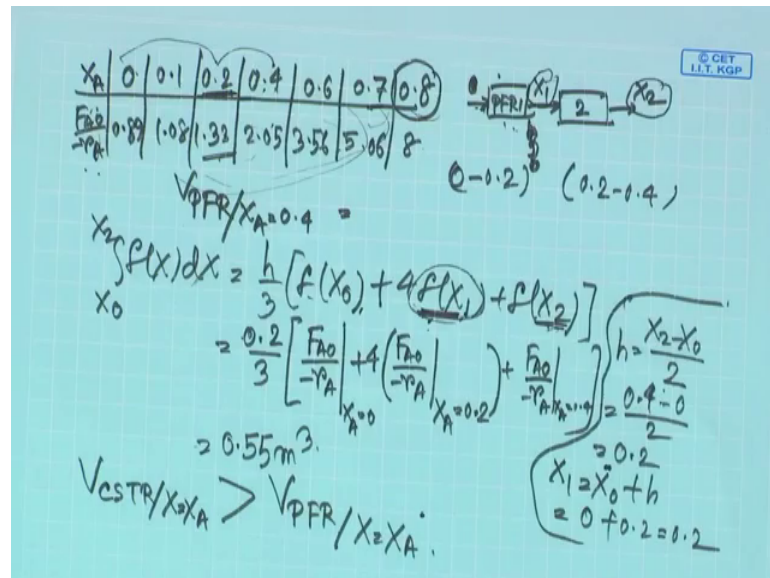 X_A | 0. | 0.1 | 0.2 | 0.4 | 0.6 | 0.7 | 0.8
F_A0/-r_A | 0.89 | 1.08 | 1.33 | 2.05 | 3.56 | 5.06 | 8
© CET
I.I.T. KGP
0 → PFR1 → X_1 → 2 → X_2
(0-0.2) (0.2-0.4)
V_PFR/X_A=0.4 =
∫_{X_0}^{X_2} f(X)dX = h/3 [f(X_0) + 4f(X_1) + f(X_2)]
= 0.2/3 [F_A0/-r_A |_{X_A=0} + 4(F_A0/-r_A |_{X_A=0.2}) + F_A0/-r_A |_{X_A=0.4}]
= 0.55 m³.
V_CSTR/X=X_A > V_PFR/X=X_A.
h = X_2-X_0/2
= 0.4-0/2
= 0.2
X_1 = X_0 + h
= 0+0.2 = 0.2